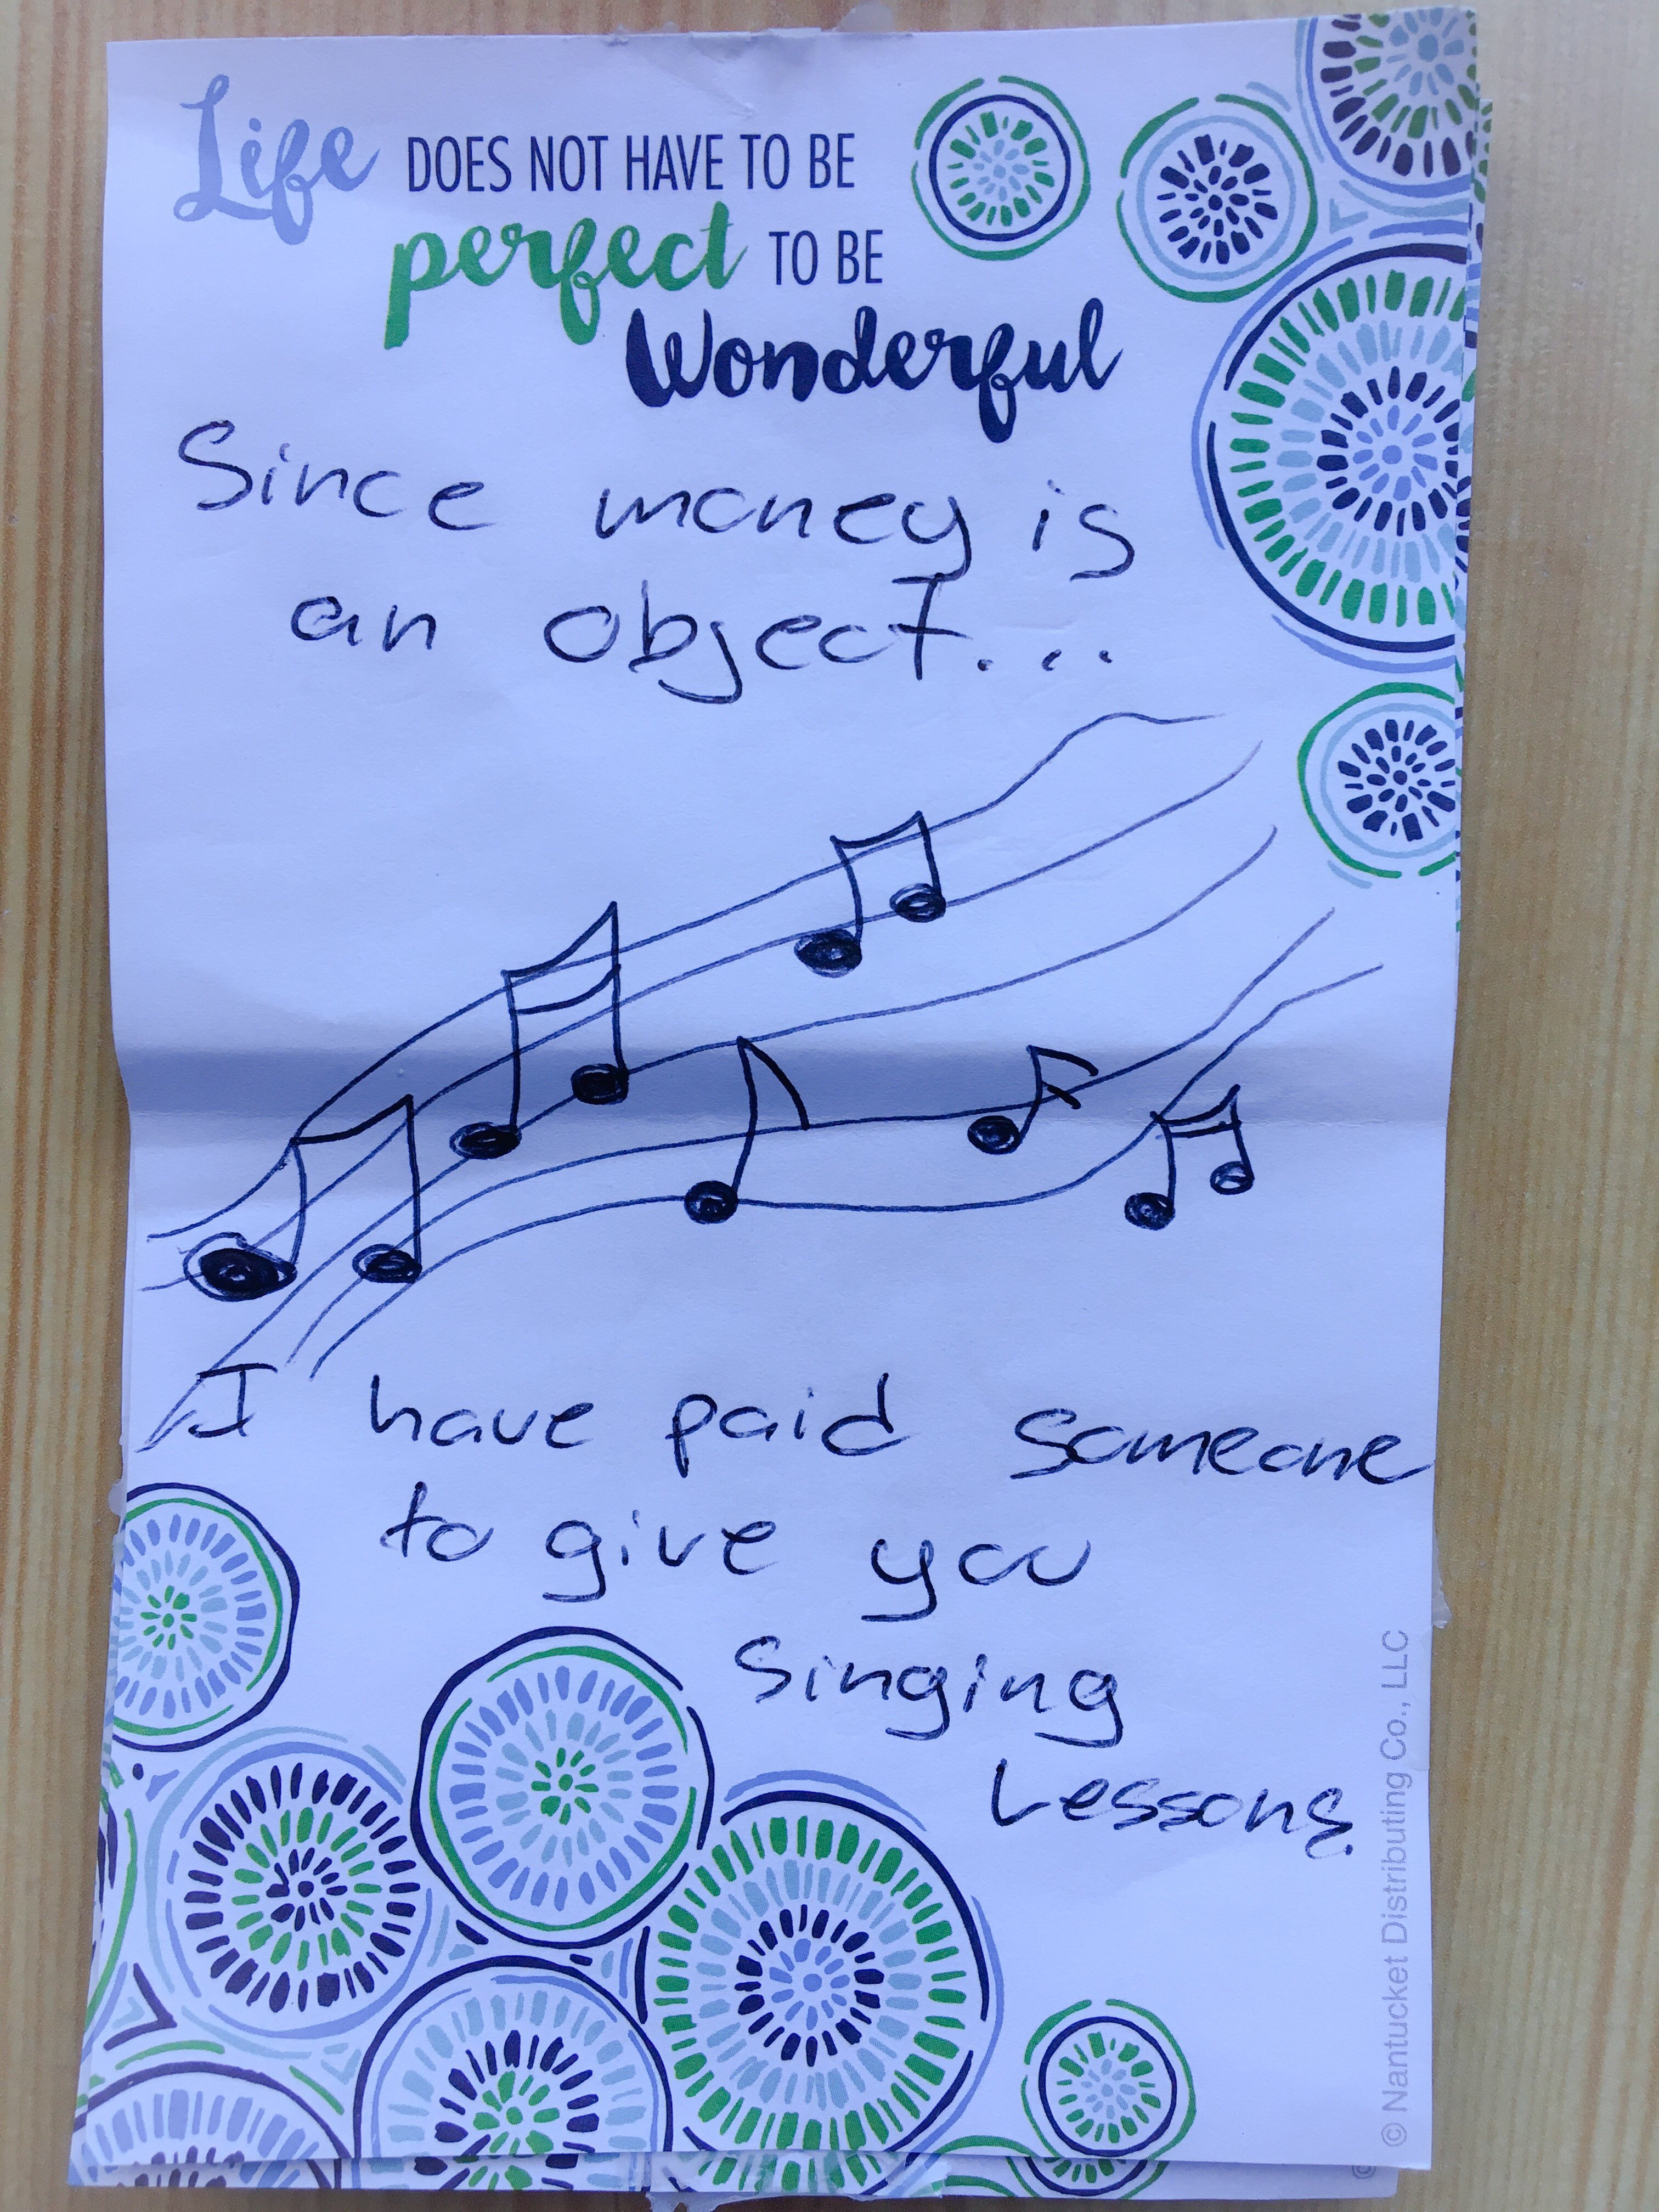 Life DOES NOT HAVE TO BE
perfect TO BE
Wonderful
Since money is
an object...
I have paid someone
to give you
singing
Lessons.
© Nantucket Distributing Co., LLC
©